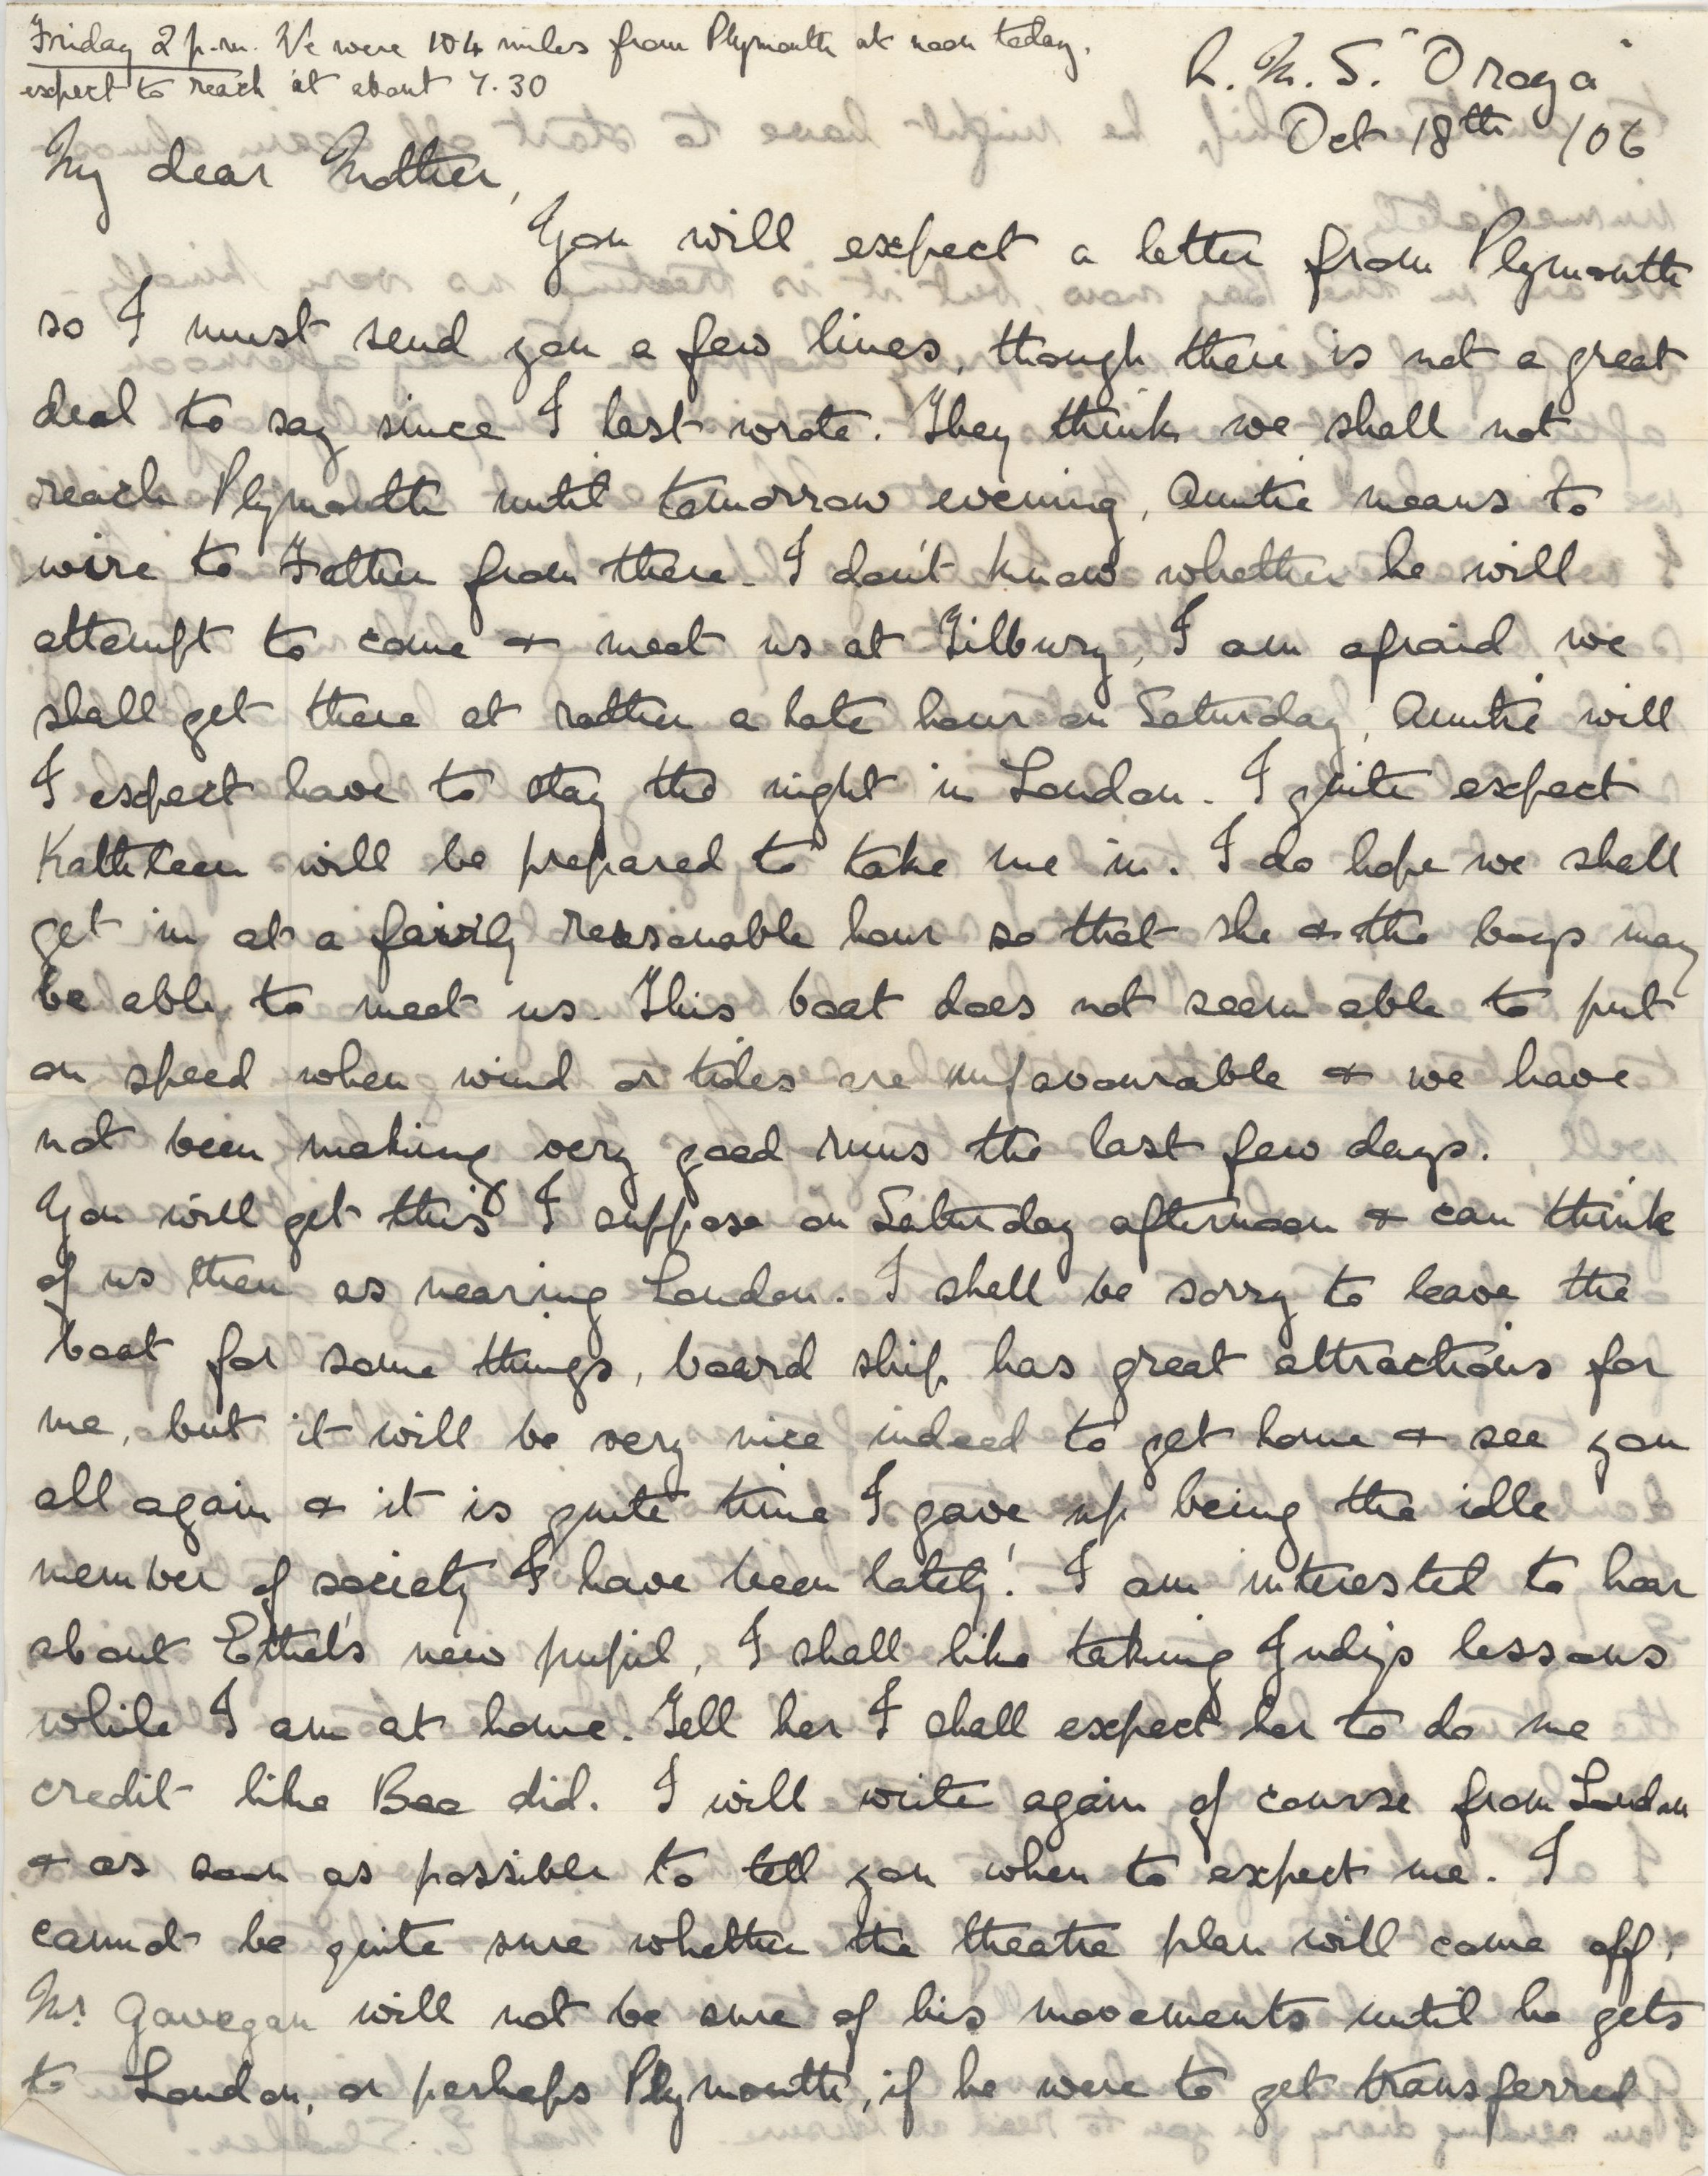 Friday 2 p.m. We were 104 miles from Plymouth at noon today.
expect to reach it about 7.30
R.M.S. "Oroya"
Oct 18th /06
My dear Mother,
You will expect a letter from Plymouth
so I must send you a few lines, though there is not a great
deal to say since I last wrote. They think we shall not
reach Plymouth until tomorrow evening, Auntie means to
wire to Father from there. I don't know whether he will
attempt to come & meet us at Tilbury, I am afraid we
shall get there at rather a late hour on Saturday, Auntie will
I expect have to stay the night in London. I quite expect
Kathleen will be prepared to take me in. I do hope we shall
get in at a fairly reasonable hour so that she & the boys may
be able to meet us. This boat does not seem able to put
on speed when wind or tides are unfavourable & we have
not been making very good runs the last few days.
You will get this I suppose on Saturday afternoon & can think
of us then as nearing London. I shall be sorry to leave the
boat for some things, board ship has great attractions for
me, but it will be very nice indeed to get home & see you
all again & it is quite time I gave up being the idle
member of society I have been lately! I am interested to hear
about Ethel's new pupil, I shall like taking Judy's lessons
while I am at home. Tell her I shall expect her to do me
credit like Bee did. I will write again of course from London
& as soon as possible to tell you when to expect me. I
cannot be quite sure whether the theatre plan will come off,
Mr Gavegan will not be sure of his movements until he gets
to London, or perhaps Plymouth, if he were to get transferred